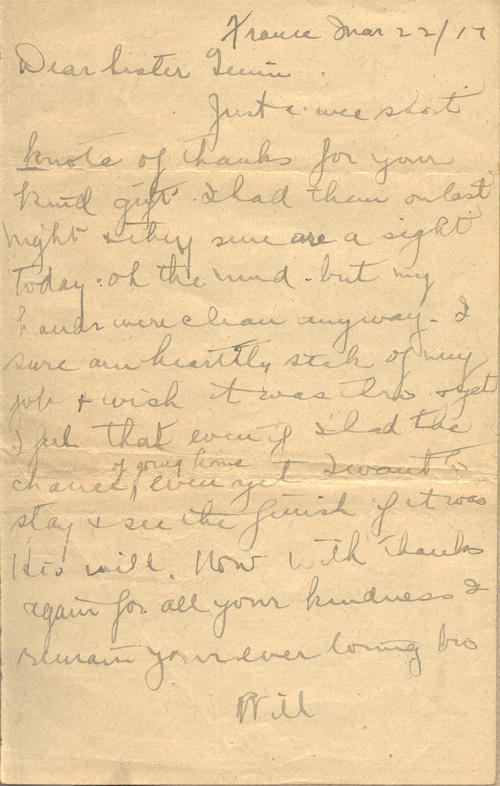 France Mar 22/17
Dear Sister
Just a wee short
knote of thanks for your
kind gift. I had them on last
night & they sure are a sight
today. oh the mud - but my
hands were clean anyway. I
sure am heartily sick of my
job & wish it was thro & yet
I feel that even if I had the
chance, of going home even yet I want to
stay & see the finish if it was
His will. Now with thanks
again for all your kindness I
remain your ever loving bro
Will